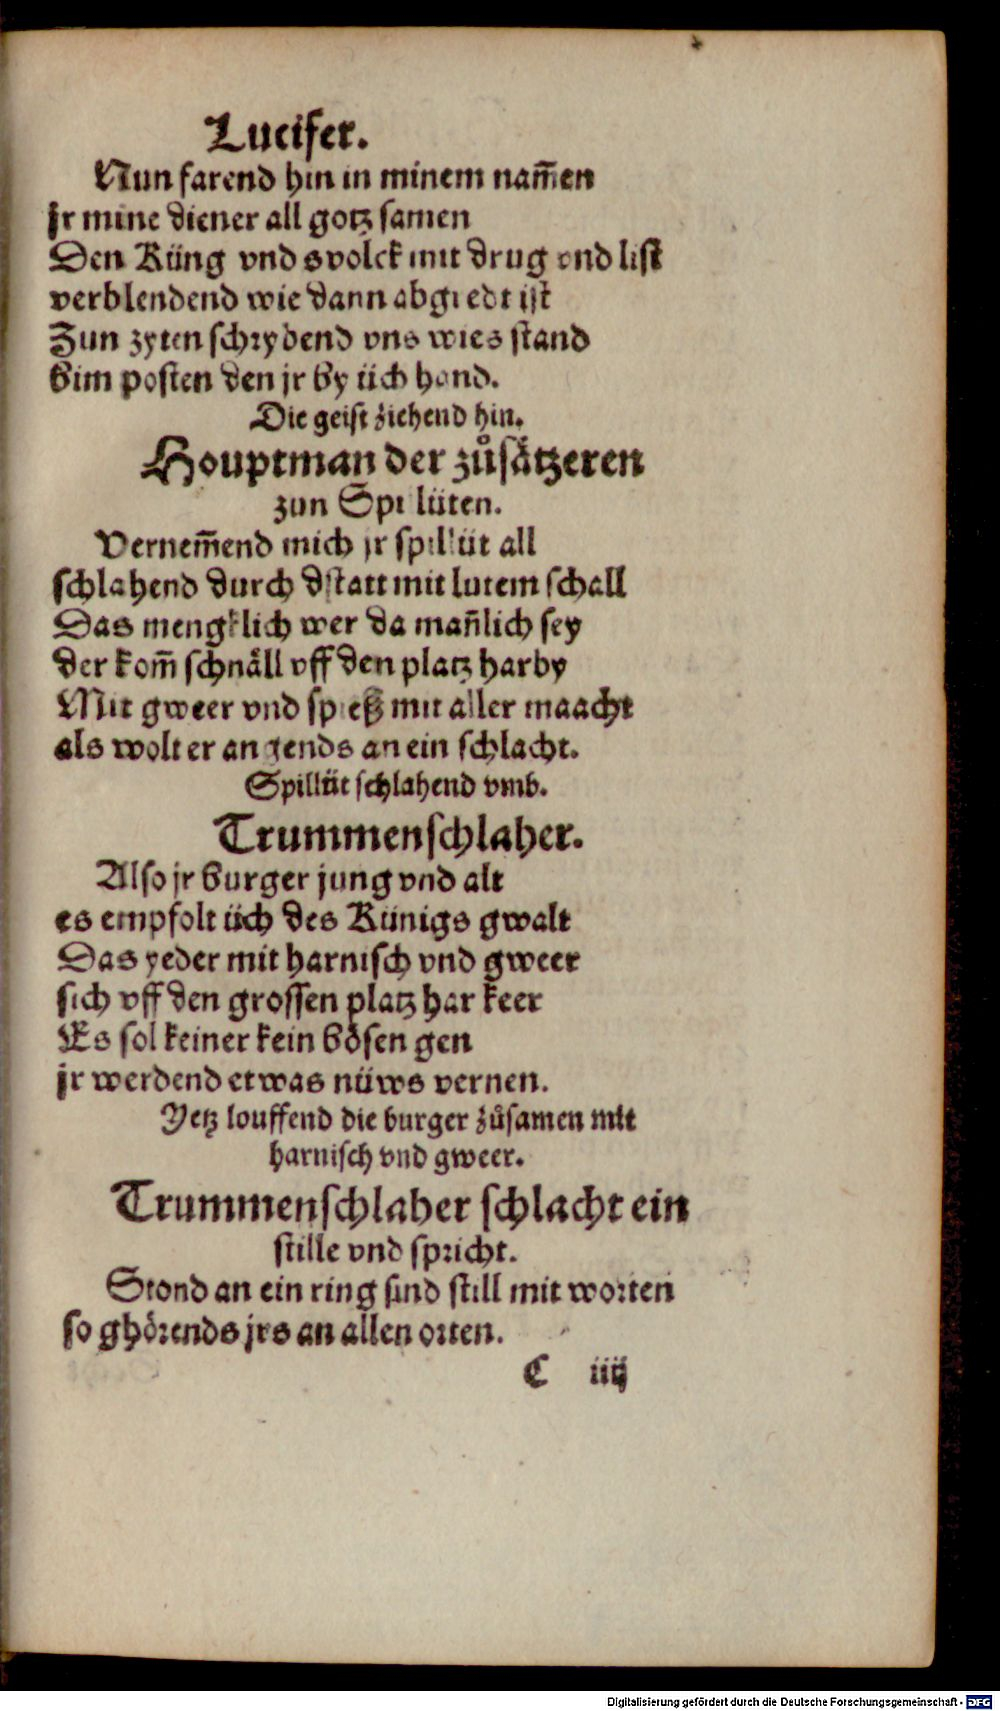 Lucifer.
Nun farend hin in minem nam̄en
Jr mine diener all gotz samen
Den Küng vnd svolck mit drug vnd list
verblendend wie dann abgredt ist
Zun zyten schrybend vns wies stand
bim posten den jr by üch hand.
Die geist ziehend hin.
Houptman der zůsåtzeren
zun Spillüten.
Vernem̄end mich jr spillüt all
schlahend durch dstatt mit lutem schall
Das mengklich wer da man̄lich sey
der kom̄ schnåll vff den platz harby
Mit gweer vnd spieß mit aller maacht
als wolt er angends an ein schlacht.
Spillüt schlahend vmb.
Trummenschlaher.
Also jr burger jung vnd alt
es empfolt üch des Künigs gwalt
Das yeder mit harnisch vnd gweer
sich vff den grossen platz har keer
Es sol keiner kein bösen gen
jr werdend etwas nüws vernen.
Yetz louffend die burger zůsamen mit
harnisch vnd gweer.
Trummenschlaher schlacht ein
stille vnd spricht.
Stond an ein ring sind still mit worten
so ghörends jrs an allen orten.
C iiij
Digitalisierung gefördert durch die Deutsche Forschungsgemeinschaft - DFG